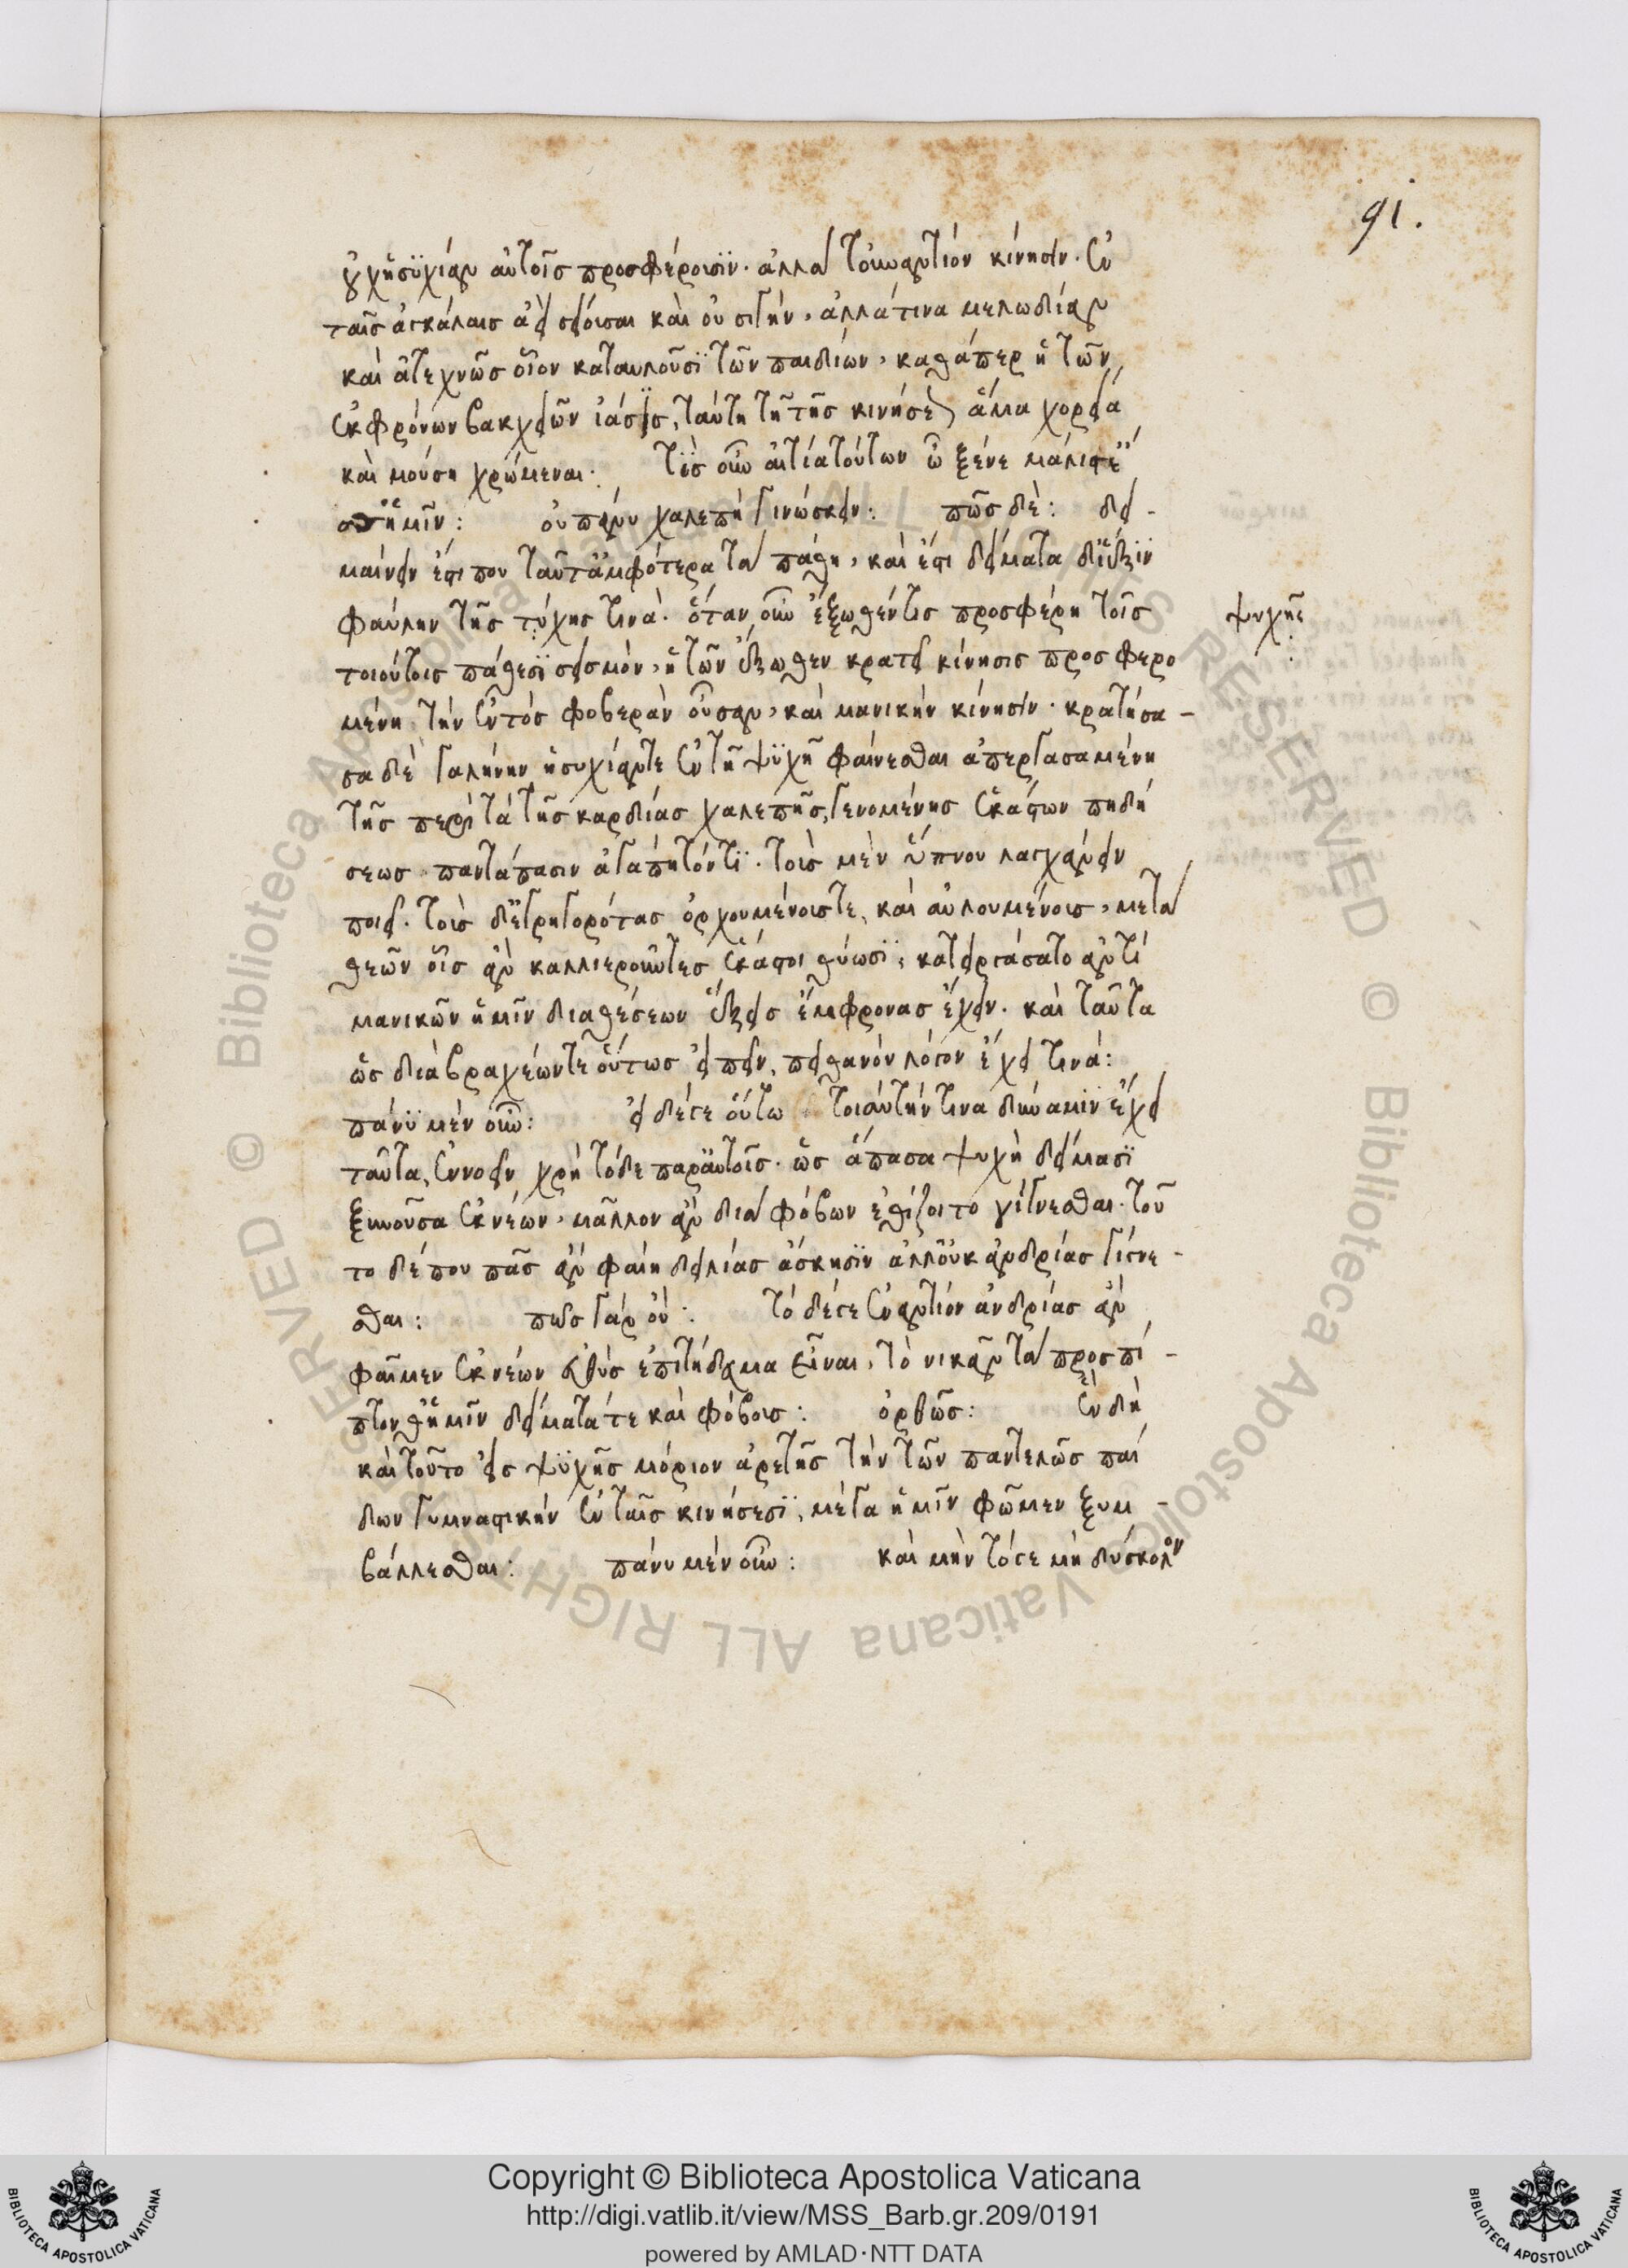 91.
οὐχ ἡσυχίαν αὐτοῖς προσφέρουσϊν· ἀλλὰ τοὐναντίον κίνησιν· ἐν
ταῖς ἀγκάλαις ἀεὶ σείουσαι καὶ οὐ σιγὴν, ἀλλά τινα μελωδίαν
καὶ ἀτεχνῶς οἷον καταυλοῦσϊ τῶν παιδίων, καθάπερ ἡ τῶν
ἐκφρόνων βακχειῶν ἰάσεις, ταύτη τῆ τῆς κινήσεως ἅμα χορεία
καὶ μούση χρώμεναι: τίς οὖν αἰτία τούτων ὦ ξένε μάλιστ' ἔ
σθ' ἡμῖν: οὐ πάνυ χαλεπὴ γινώσκειν: πῶς δὲ: δει-
μαίνειν ἐστι που ταῦτ' ἀμφότερα τὰ πάθη, καὶ ἔστι δείματα δι' ἕξϊν
φαύλην τῆς τύχης τινά· ὅταν οὖν ἔξωθέν τις προσφέρη τοῖς
ψυχῆς
τοιούτοις πάθεσϊ σεισμὸν, ἡ τῶν ἔξωθεν κρατεῖ κίνησις προσφερο
μένη τὴν ἐντὸς φοβερὰν οὖσαν, καὶ μανικὴν κίνησιν· κρατήσα-
σα δὲ γαλήνην ἡσυχίαν τε ἐν τῆ ψϋχῆ φαίνεσθαι ἀπεργασαμένη
τῆς περὶ τὰ τῆς καρδίας χαλεπῆς γενομένης ἑκάστων πηδή
σεως παντάπασιν ἀγαπητόν τϊ· τοὺς μὲν ὕπνου λαγχάνειν
ποιεῖ· τοὺς δ' ἐγρηγορότας ὀρχουμένοις τε καὶ αὐλουμένοις, μετὰ
θεῶν οἷς ἂν καλλιεροῦντες ἕκαστοι θύωσϊ, κατειργάσατο ἀντὶ
μανικῶν ἡμῖν διαθέσεων ἕξεις ἔμφρονας ἔχειν· καὶ ταῦτα
ὡς διὰ βραχέων γε οὕτως εἰπεῖν, πιθανὸν λόγον ἔχει τινά:
πάνϋ μὲν οὖν: εἰ δέ γε οὕτω τοιαύτην τινα δύναμϊν ἔχει
ταῦτα, ἐννοεῖν χρὴ τόδε παρ' αὐτοῖς· ὡς ἅπασα ψυχὴ δείμασϊ
ξυνοῦσα ἐκ νέων, μᾶλλον ἂν διὰ φόβων ἐθίζοιτο γίγνεσθαι· τοῦ
το δέ που πᾶς ἂν φαίη δειλίας ἄσκησϊν ἀλλ' οὐκ ἀνδρίας γίγνε-
σθαι: πῶς γὰρ οὐ: τὸ δέ γε ἐναντίον ἀνδρίας ἂν
φαῖμεν ἐκ νέων εὐθὺς ἐπιτήδευμα εἶναι, τὸ νικᾶν τὰ προσπί-
πτονθ' ἡμῖν δείματά τε καὶ φόβοις: ὀρθῶς: ἓν δὴ
καὶ τοῦτο εἰς ψϋχῆς μόριον ἀρετῆς τὴν τῶν παντελῶς παί
δων γυμναστικὴν ἐν ταῖς κινήσεσϊ, μέγα ἡμῖν φῶμεν ξυμ-
βάλλεσθαι: πάνυ μὲν οὖν: καὶ μὴν τό γε μὴ δύσκολον
Copyright © Biblioteca Apostolica Vaticana
http://digi.vatlib.it/view/MSS_Barb.gr.209/0191
powered by AMLAD·NTT DATA